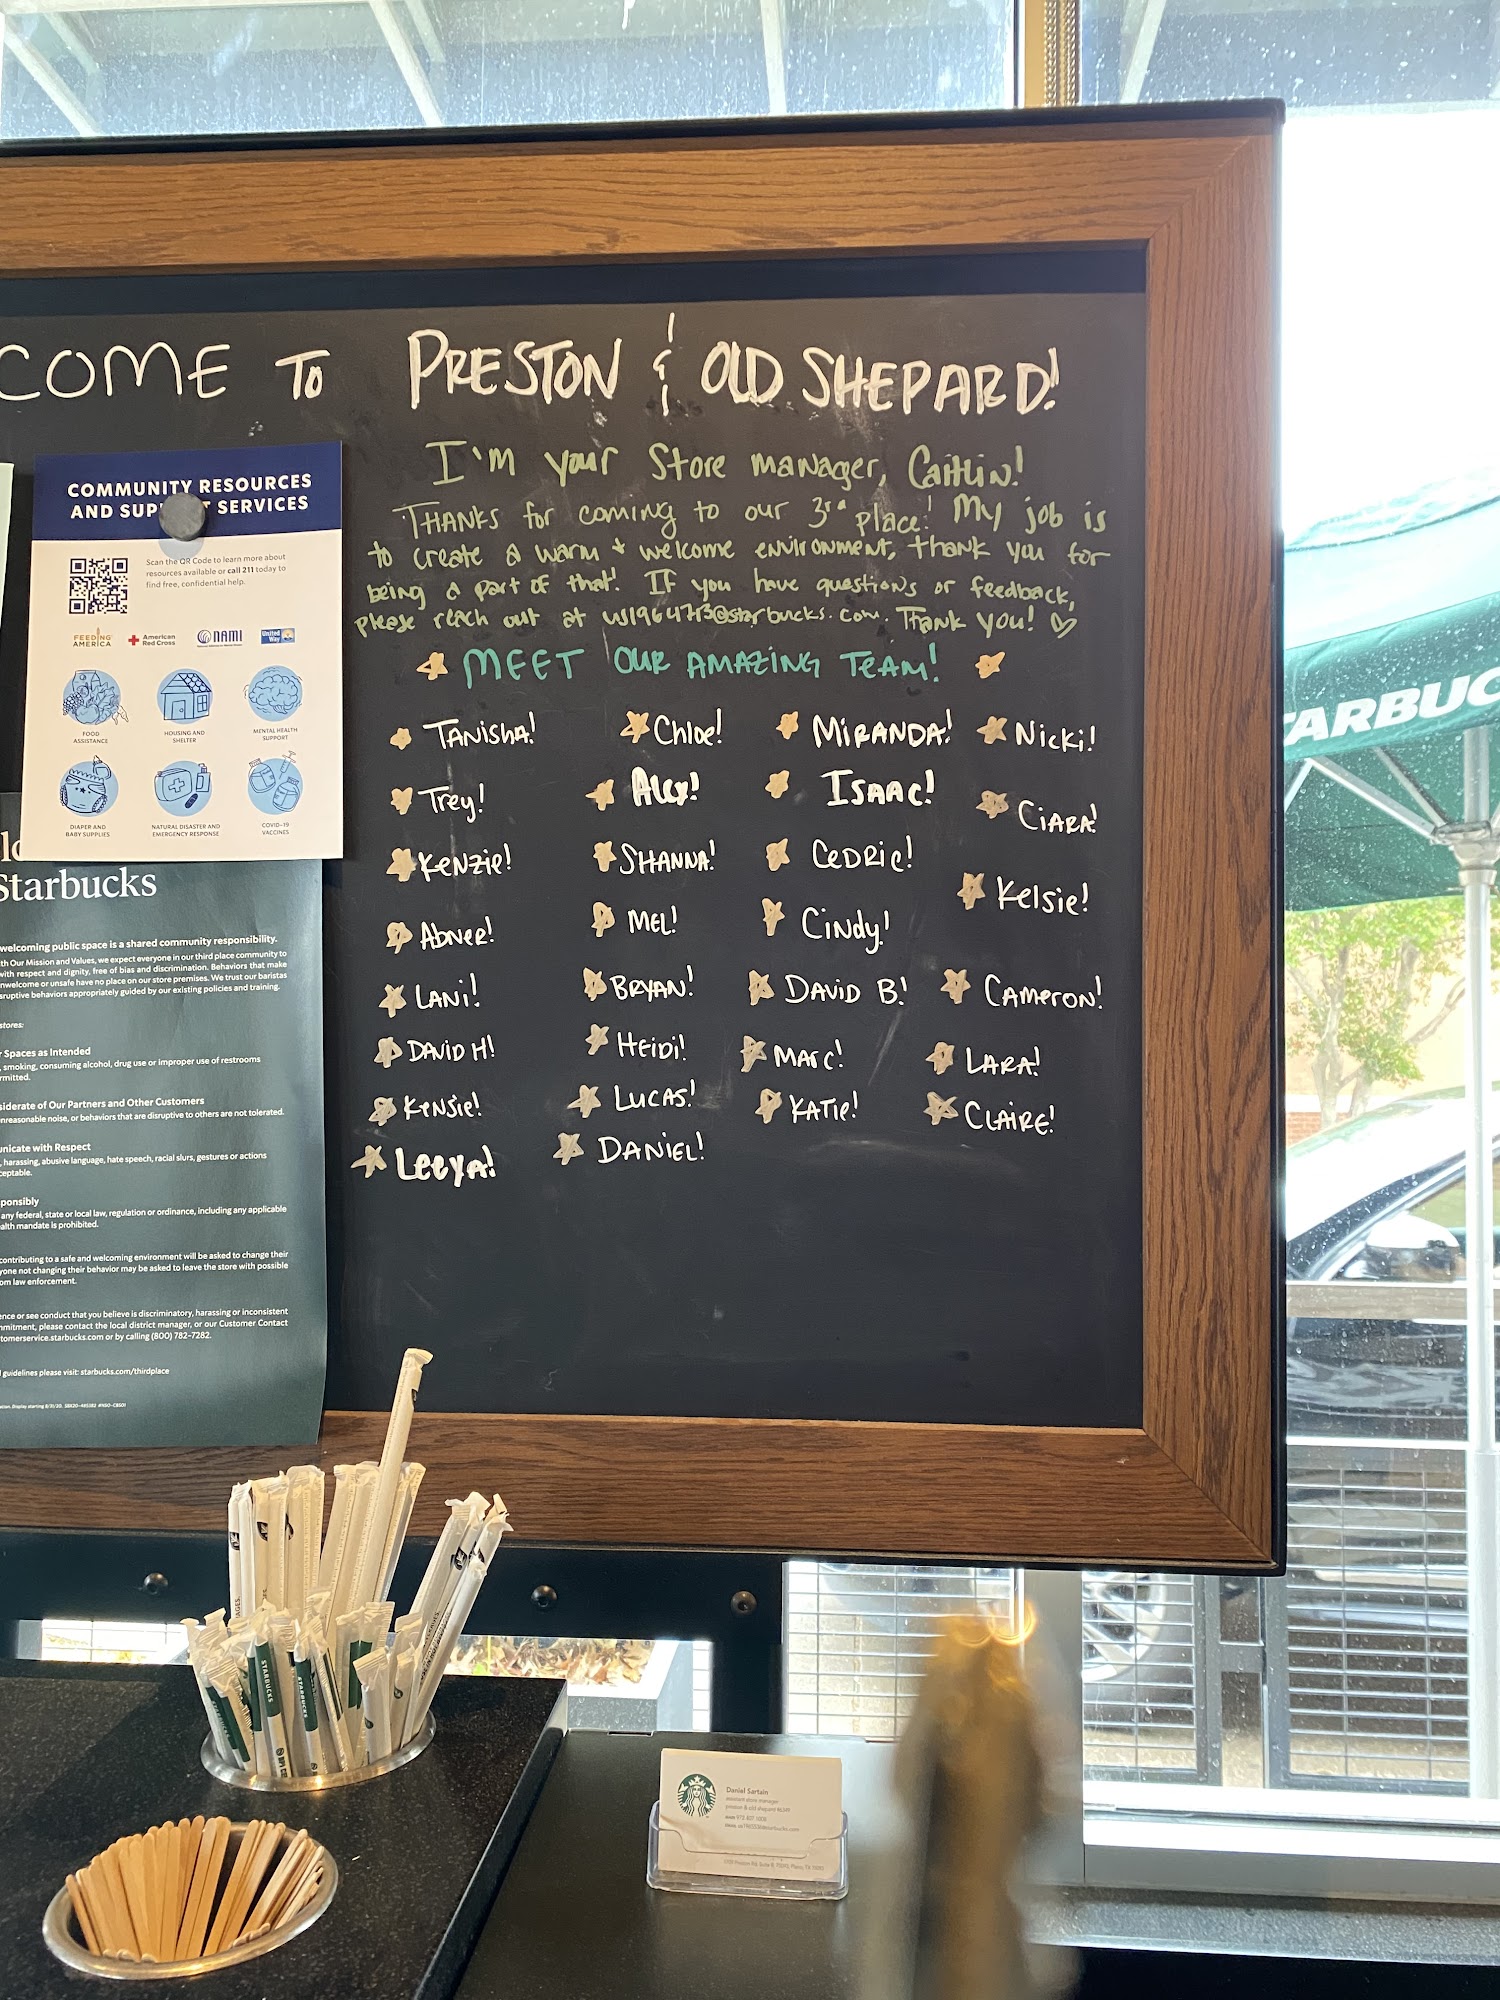 COME TO PRESTON & OLD SHEPARD!
I'M your Store manager, Caitlin!
THANKS for coming to our 3rd place! My job is
to create a warm + welcome environment, thank you for
being a part of that! If you have questions or feedback,
please reach out at US1964713@starbucks.com. Thank you! ♡
MEET OUR AMAZING TEAM!
TANISHA! Chloe! MIRANDA! Nicki!
Trey! Alex! ISAAC! CIARA!
KENZIE! SHANNA! CEDRIC! Kelsie!
Abner! MEL! Cindy!
LANI! BRYAN! DAVID B! CAMERON!
DAVID H! HEIDI! MARC! LARA!
KENSIE! LUCAS! KATIE! CLAIRE!
Leeya! DANIEL!
COMMUNITY RESOURCES
AND SUPPORT SERVICES
Scan the QR Code to learn more about
resources available or call 211 today to
find free, confidential help.
FEEDING AMERICA
American Red Cross
NAMI
United Way
FOOD ASSISTANCE
HOUSING AND SHELTER
MENTAL HEALTH SUPPORT
DIAPER AND BABY SUPPLIES
NATURAL DISASTER AND EMERGENCY RESPONSE
COVID-19 VACCINES
Starbucks
welcoming public space is a shared community responsibility.
th Our Mission and Values, we expect everyone in our third place community to
with respect and dignity, free of bias and discrimination. Behaviors that make
nwelcome or unsafe have no place on our store premises. We trust our baristas
sruptive behaviors appropriately guided by our existing policies and training.
stores:
r Spaces as Intended
, smoking, consuming alcohol, drug use or improper use of restrooms
rmitted.
siderate of Our Partners and Other Customers
nreasonable noise, or behaviors that are disruptive to others are not tolerated.
unicate with Respect
, harassing, abusive language, hate speech, racial slurs, gestures or actions
ceptable.
ponsibly
any federal, state or local law, regulation or ordinance, including any applicable
alth mandate is prohibited.
contributing to a safe and welcoming environment will be asked to change their
yone not changing their behavior may be asked to leave the store with possible
om law enforcement.
ence or see conduct that you believe is discriminatory, harassing or inconsistent
mmitment, please contact the local district manager, or our Customer Contact
tomerservice.starbucks.com or by calling (800) 782-7282.
guidelines please visit: starbucks.com/thirdplace
TARBUC
STARBUCKS
STARBUCKS
Daniel Sartain
assistant store manager